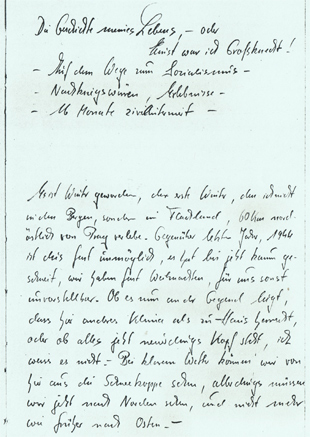 Die Geschichte meines Lebens, – oder
Einst war ich Großknecht!
– Auf dem Wege zum Sozialismus –
– Nachkriegswirren, Erlebnisse –
– 16 Monate zivilinterniert –
Es ist Winter geworden, der erste Winter, den ich nicht
in den Bergen, sondern im Flachland, 60 km nord-
östlich von Prag verlebe. Gegenüber letztem Jahr, 1944
ist dies fast unmöglich, es hat bis jetzt kaum ge-
schneit, wir haben fast Weihnachten, für uns sonst
unvorstellbar. Ob es nun an der Gegend liegt,
dass hier anderes Klima als zu Haus herrscht,
oder ob alles jetzt neuerdings Kopf steht, ich
weiss es nicht. – Bei klarem Wetter können wir von
hier aus die Schneekoppe sehen, allerdings müssen
wir jetzt nach Norden sehen, und nicht mehr
wie früher nach Osten. –